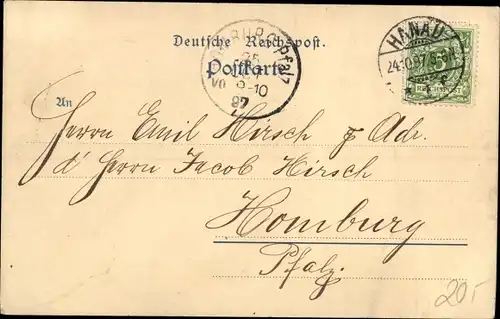 Deutsche Reichspost.
Postkarte
HANAU
24.10.97. 5-6N.
REICHSPOST
25
8-10
V
97
An
Herrn Emil Hirsch p Adr.
d' Herrn Jacob Hirsch
Homburg
Pfalz.
20.-